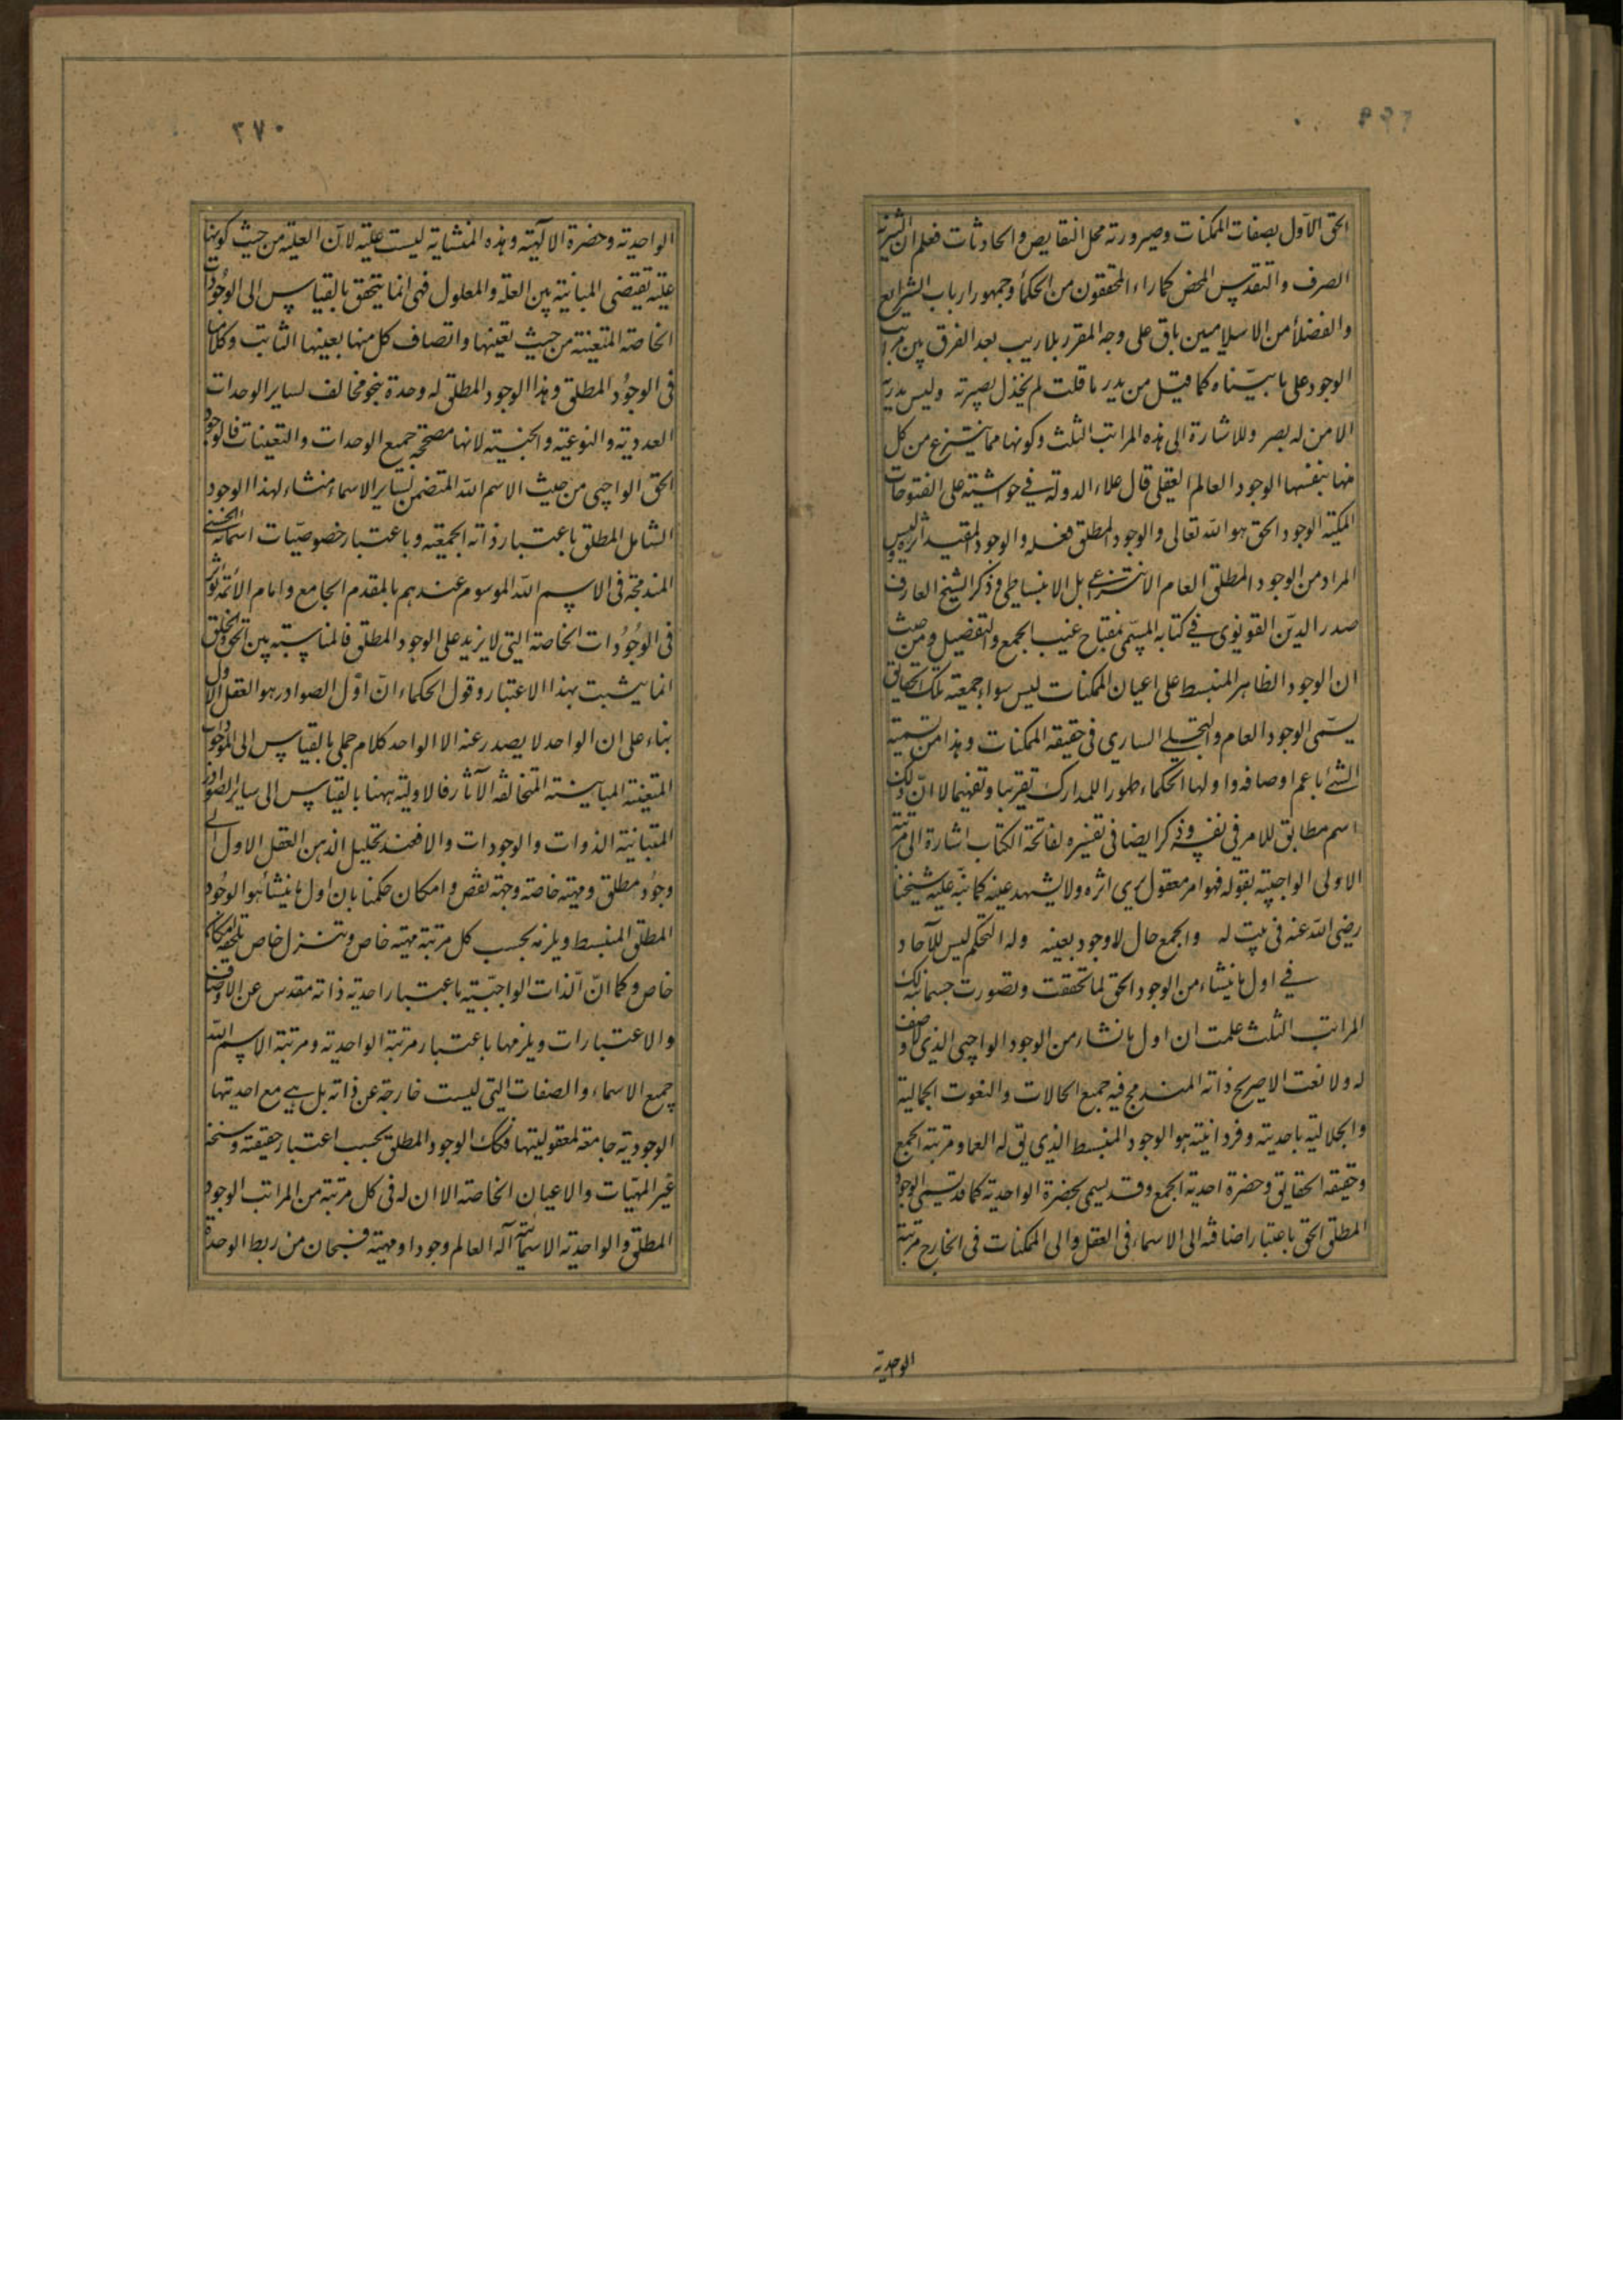 ٣٦٩
الحق الاول بصفات الممكنات وصيرورته محل النقايص والحادثات فعلم ان التنزيه
الصرف والتقديس المحض كما راه المحققون من الحكماء وجمهور ارباب الشرايع
والفضلاء من الاسلاميين باق على وجه المقرر بلا ريب بعد الفرق بين مراتب
الوجود على ما بيناه كما قيل من يدر ما قلت لم يخذل بصيرته وليس يدريه
الا من له بصر وللاشارة الى هذه المراتب الثلث وكونها مما ينتزع من كل
منها بنفسها الوجود العالم العقلى قال علاء الدولة فى حواشيته على الفتوحات
المكية الوجود الحق هو الله تعالى والوجود المطلق فعله والوجود المقيد اثره وليس
المراد من الوجود المطلق العام الانتزاعى بل الانبساطى وذكر الشيخ العارف
صدر الدين القونوى فى كتابه المسمى بمفتاح غيب الجمع والتفصيل ومن حيث
ان الوجود الظاهر المنبسط على اعيان الممكنات ليس سواء جمعية تلك الحقايق
يسمى الوجود العام والتجلى السارى فى حقيقة الممكنات وهذا من تسمية
الشئ باعم اوصافه واولها الحكماء ظهورا للمدارك تقريبا وتفهيما لا ان ذلك
اسم مطابق للامر فى نفسه وذكر ايضا فى تفسيره لفاتحة الكتاب اشارة الى مرتبة
الاولى الواجبية بقوله فهو امر معقول يرى اثره ولا يشهد عينه كما نبه عليه شيخنا
رضى الله عنه فى بيت له والجمع حال لا وجود بعينه وله التحكم ليس للآحاد
فى اول ما ينشاء من الوجود الحق لما تحققت وتصورت حسبما لك
المراتب الثلث علمت ان اول ما نشا من الوجود الواجبى الذى لا وصف
له ولا نعت الا صريح ذاته المندمج فيه جميع الحالات والنعوت الجمالية
والجلالية باحديته وفردانيته هو الوجود المنبسط الذى يق له العما ومرتبة الجمع
وحقيقة الحقايق وحضرة احدية الجمع وقد يسمى بحضرة الواحدية كما قد يسمى الوجود
المطلق الحق باعتبار اضافته الى الاسماء فى العقل والى الممكنات فى الخارج مرتبة
الوحدية
٣٧٠
الواحدية وحضرة الالهية وهذه المنشاية ليست علية لان العلية من حيث كونها
علية تقتضى المباينة بين العلة والمعلول فهى انما يتحقق بالقياس الى الوجودات
الخاصة المتعينة من حيث تعينها واتصاف كل منها بعينها الثابت وكلامنا
فى الوجود المطلق وهذا الوجود المطلق له وحدة بنحو مخالف لساير الوحدات
العددية والنوعية والجنسية لانها مصححة جميع الوحدات والتعينات فالوجود
الحق الواجبى من حيث الاسم الله المتضمن لساير الاسماء منشاء لهذا الوجود
الشامل المطلق باعتبار ذاته الجمعية وباعتبار خصوصيات اسمائه الحسنى
المندمجة فى الاسم الله الموسوم عندهم بالمقدم الجامع وامام الائمة مؤثر
فى الوجودات الخاصة التى لا يزيد على الوجود المطلق فالمناسبة بين الحق والخلق
انما يثبت بهذا الاعتبار وقول الحكماء ان اول الصوادر هو العقل الاول
بناء على ان الواحد لا يصدر عنه الا الواحد كلام جملى بالقياس الى الموجودات
المتعينة المباينة المتخالفة الآثار فالاولية ههنا بالقياس الى ساير الصوادر
المتباينة الذوات والوجودات والا فعند تحليل الذهن العقل الاول الى
وجود مطلق ومهية خاصة وجهة نقص وامكان حكمنا بان اول ما ينشأ هو الوجود
المطلق المنبسط ويلزمه بحسب كل مرتبة مهية خاص وتنزل خاص يلحقه امكان
خاص وكما ان الذات الواجبية باعتبار احدية ذاته مقدس عن الاوصاف
والاعتبارات ويلزمها باعتبار مرتبة الواحدية ومرتبة الاسم الله
جميع الاسماء والصفات التى ليست خارجة عن ذاته بل هى مع احديتها
الوجودية جامعة لمعقوليتها فكك الوجود المطلق بحسب اعتبار حقيقته وسنخه
غير المهيات والاعيان الخاصة الا ان له فى كل مرتبة من المراتب الوجود
المطلق والواحدية الاسمائية آله العالم وجودا ومهية فسبحان من ربط الوحدة